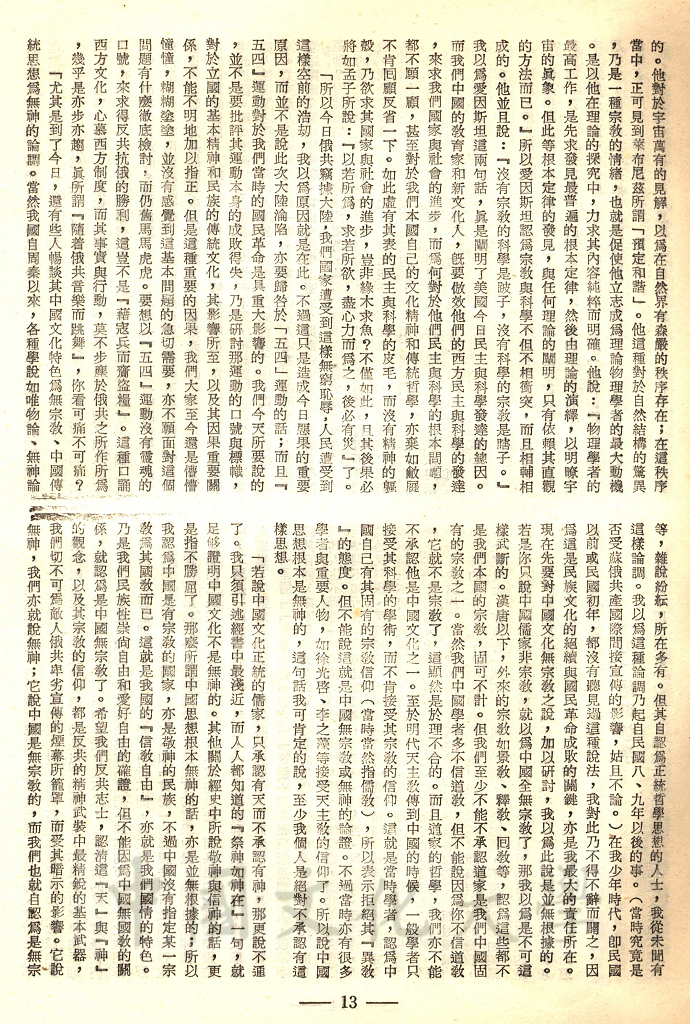 的。他對於宇宙萬有的見解，以爲在自然界有森嚴的秩序存在；在這秩序
當中，正可見到萊布尼茲所謂「預定和諧」。他這種對於自然結構的驚異
，乃是一種宗教的情緒，也就是促使他立志成爲理論物理學者的最大動機
。是以他在理論的探究中，力求其內容純粹而明確。他說：『物理學者的
最高工作，是先求發見最普遍的根本定律，然後由理論的演繹，以明瞭宇
宙的眞象。但此等根本定律的發見，與任何理論的闡明，只有依賴其直觀
的方法而已。』所以愛因斯坦認爲宗教與科學不但不相衝突，而且相輔相
成的。他並且說：『沒有宗教的科學是跛子，沒有科學的宗教是瞎子。』
我以爲愛因斯坦這兩句話，眞是闡明了美國今日民主與科學發達的總因。
而我們中國的教育家和新文化人，旣要倣效他們的西方民主與科學的發達
，來求我們國家與社會的進步，而爲何對於他們民主與科學的根本問題，
都不顧一顧，甚至對於我們本國自己的文化精神和傳統哲學，亦棄如敝屣
不肯回顧反省一下。如此虛有其表的民主與科學的皮毛，而沒有精神的軀
殼，乃欲求其國家與社會的進步，豈非緣木求魚？不僅如此，且其後果必
將如孟子所說：『以若所爲，求若所欲，盡心力而爲之，後必有災』了。
「所以今日俄共竊據大陸，我們國家遭受到這樣無窮恥辱，人民遭受到
這樣空前的浩刼，我以爲原因就是在此。不過這只是造成今日惡果的重要
原因，而並不是說此次大陸淪陷，亦要歸咎於「五四」運動的話；而且『
五四』運動對於我們當時的國民革命是具重大影響的。我們今天所要說的
，並不是要批評其運動本身的成敗得失，乃是研討那運動的口號與標幟，
對於立國的基本精神和民族的傳統文化，其影響所至，以及其因果重要關
係，不能不明地加以指正。但是這種重要的因果，我們大家至今還是懵懵
懂懂，糊糊塗塗，並沒有感覺到這基本問題的急切需要，亦不願面對這個
問題有什麼徹底檢討，而仍舊馬馬虎虎。要想以『五四』運動沒有靈魂的
口號，來求得反共抗俄的勝利，這豈不是『藉寇兵而齎盜糧』。這種口誦
西方文化，心慕西方制度，而其事實與行動，莫不步趨於俄共之所作所爲
，幾乎是亦步亦趨，眞所謂『隨着俄共音樂而跳舞』，你看可痛不可痛？
「尤其是到了今日，還有些人暢談其中國文化特色爲無宗教、中國傳
統思想爲無神的論調。當然我國自周秦以來，各種學說如唯物論、無神論
等，雜說紛紜，所在多有。但其自認爲正統哲學思想的人士，我從未聞有
這樣論調。我以爲這種論調乃起自民國八、九年以後的事。（當時究竟是
否受蘇俄共產國際間接宣傳的影響，姑且不論。）在我少年時代，卽民國
以前或民國初年，都沒有聽見過這種說法，我對此乃不得不辭而闢之，因
爲這是民族文化的絕續與國民革命成敗的關鍵，亦是我最大的責任所在。
現在先要對中國文化無宗教之說，加以研討，我以爲此說是並無根據的。
若是你只說中國儒家非宗教，就以爲中國全無宗教了，那我以爲是不可這
樣武斷的。漢唐以下，外來的宗教如景教、釋教、回教等，認爲這些都不
是我們本國的宗教，固可不計。但我們至少不能不承認道家是我們中國固
有的宗教之一。當然我們中國學者多不信道教，但不能說因爲你不信道教
，它就不是宗教了，這顯然是於理不合的。而且道家的哲學，我們亦不能
不承認他是中國文化之一。至於明代天主教傳到中國的時候，一般學者只
接受其科學的學術，而不肯接受其宗教的信仰。這就是當時學者，認爲中
國自己有其固有的宗教信仰（當時當然指儒教），所以表示拒絕其『異教
』的態度。但不能說這就是中國無宗教或無神的論證。不過當時亦有很多
學者與重要人物，如徐光啓、李之藻等接受天主教的信仰了。所以說中國
思想根本是無神的，這句話我可肯定的說，至少我個人是絕對不承認有這
樣思想。
「若說中國文化正統的儒家，只承認有天而不承認有神，那更說不通
了。我只須引述經書中最淺近，而人人都知道的『祭神如神在』一句，就
足够證明中國文化不是無神的。其他關於經史中所說敬神與信神的話，更
是指不勝屈了。那麼所謂中國思想根本無神的話，亦是並無根據的；所以
我認爲中國是有宗教的國家，亦是敬神的民族，不過中國沒有指定某一宗
教爲其國教而已。這就是我國的『信教自由』，亦就是我們國情的特色。
乃是我們民族性崇向自由和愛好自由的確證，但不能因爲中國無國教的關
係，就認爲是中國無宗教了。希望我們反共志士，認淸這『天』與『神』
的觀念，以及其宗教的信仰，都是反共的精神武裝中最精銳的基本武器，
我們切不可爲敵人俄共卑劣宣傳的煙幕所籠罩，而受其暗示的影響。它說
無神，我們亦就說無神；它說中國是無宗教的，而我們也就自認爲是無宗
— 13 —